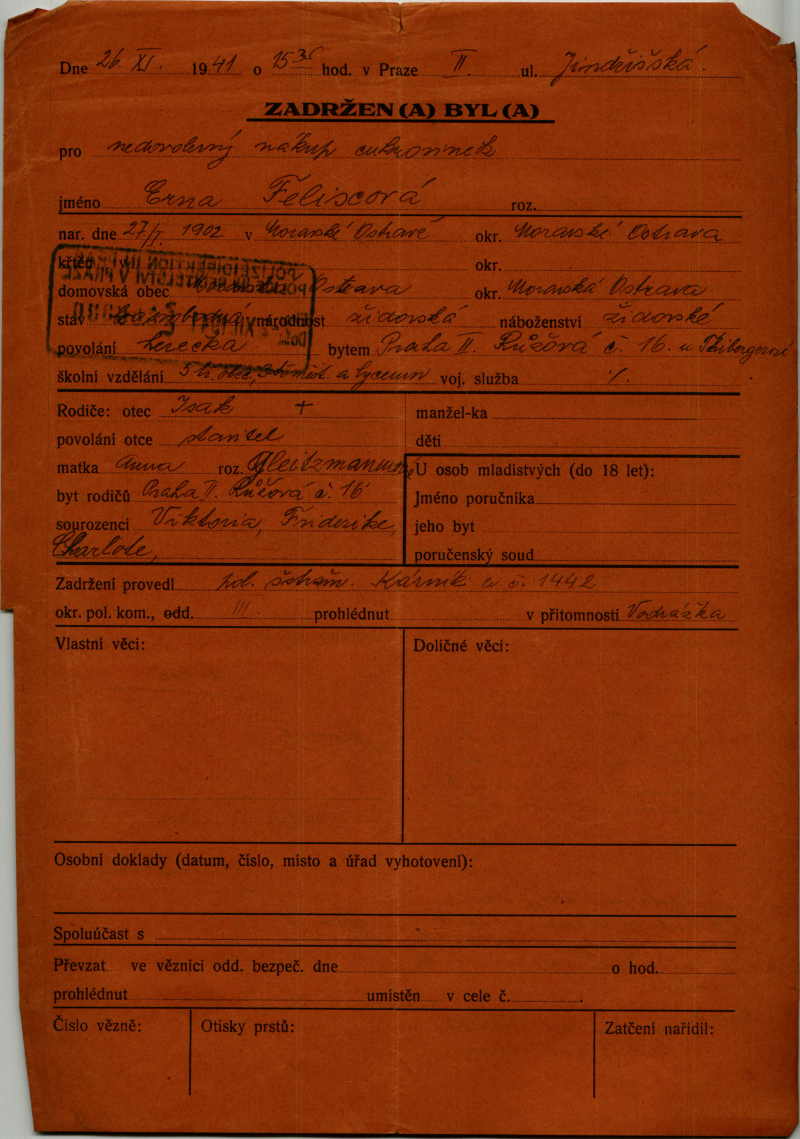 Dne 26. XI. 1941 o 15 30 hod. v Praze II. ul. Jindřišská.
ZADRŽEN(A) BYL(A)
pro nedovolený nákup cukrovinek
jméno Erna Feliscová roz.
nar. dne 27/I. 1902 v Moravské Ostravě okr. Moravská Ostrava
křtěn v okr.
domovská obec Moravská Ostrava okr. Moravská Ostrava
stav svobodná národnost židovská náboženství židovské
povolání bytem Praha II. Růžová č. 16. u
školní vzdělání 5 tř. obec, a lyceum voj. služba ./.
Rodiče: otec Isak +
povolání otce stavitel
matka Anna roz.
byt rodičů Praha II. Růžová č. 16
sourozenci Viktoria, Friderike,
Charlote,
manžel-ka
děti
U osob mladistvých (do 18 let):
Jméno poručníka
jeho byt
poručenský soud
Zadržení provedl Kárník č. 1442
okr. pol. kom., odd. III. prohlédnut v přítomnosti Vodrážka
Vlastní věci: Doličné věci:
Osobní doklady (datum, číslo, místo a úřad vyhotovení):
Spoluúčast s
Převzat ve věznici odd. bezpeč. dne o hod.
prohlédnut umístěn v cele č.
Číslo vězně: Otisky prstů: Zatčení nařídil: